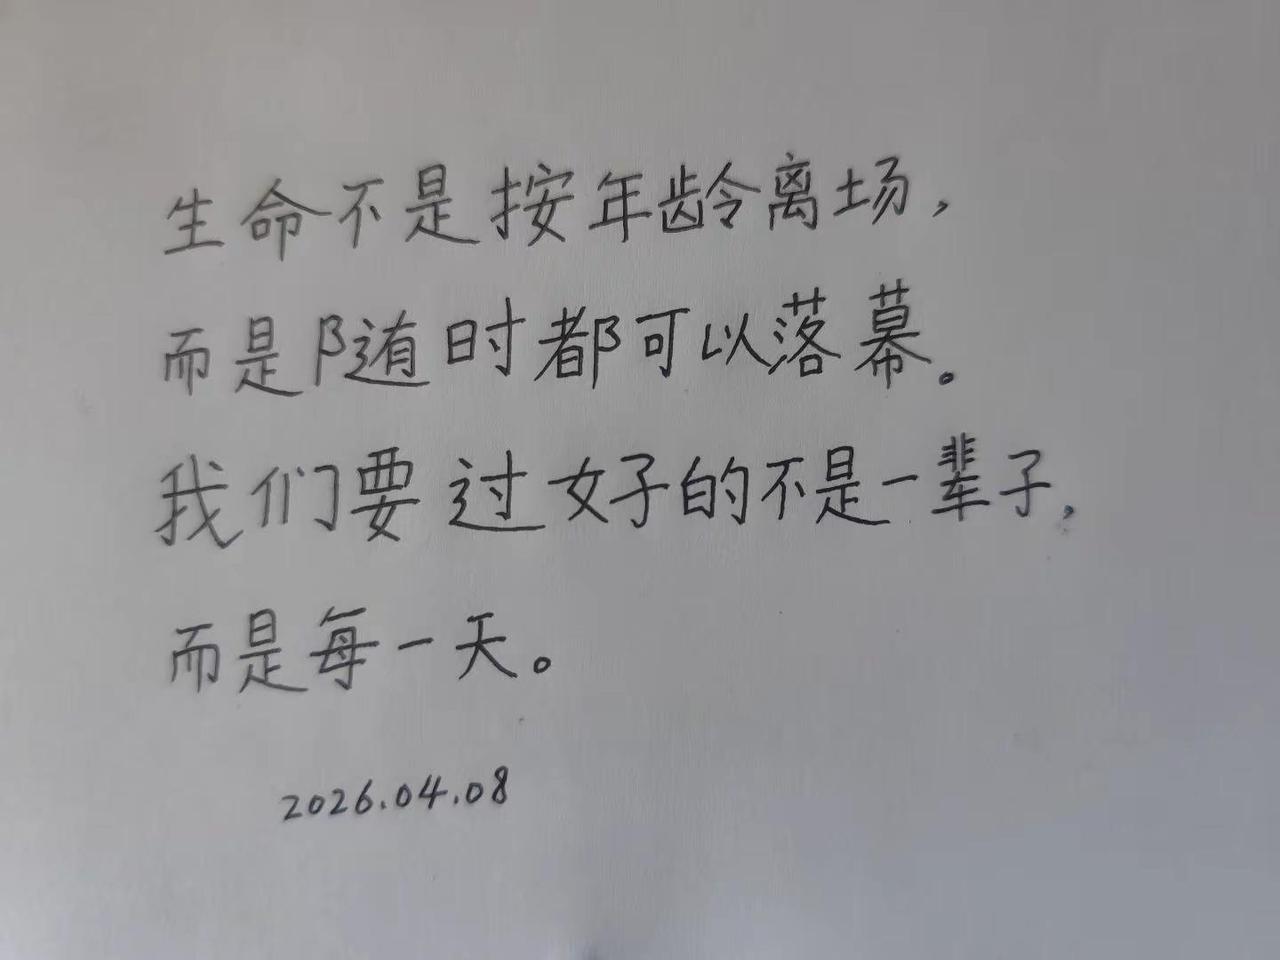 生命不是按年龄离场，
而是随时都可以落幕。
我们要过好的不是一辈子，
而是每一天。
2026.04.08